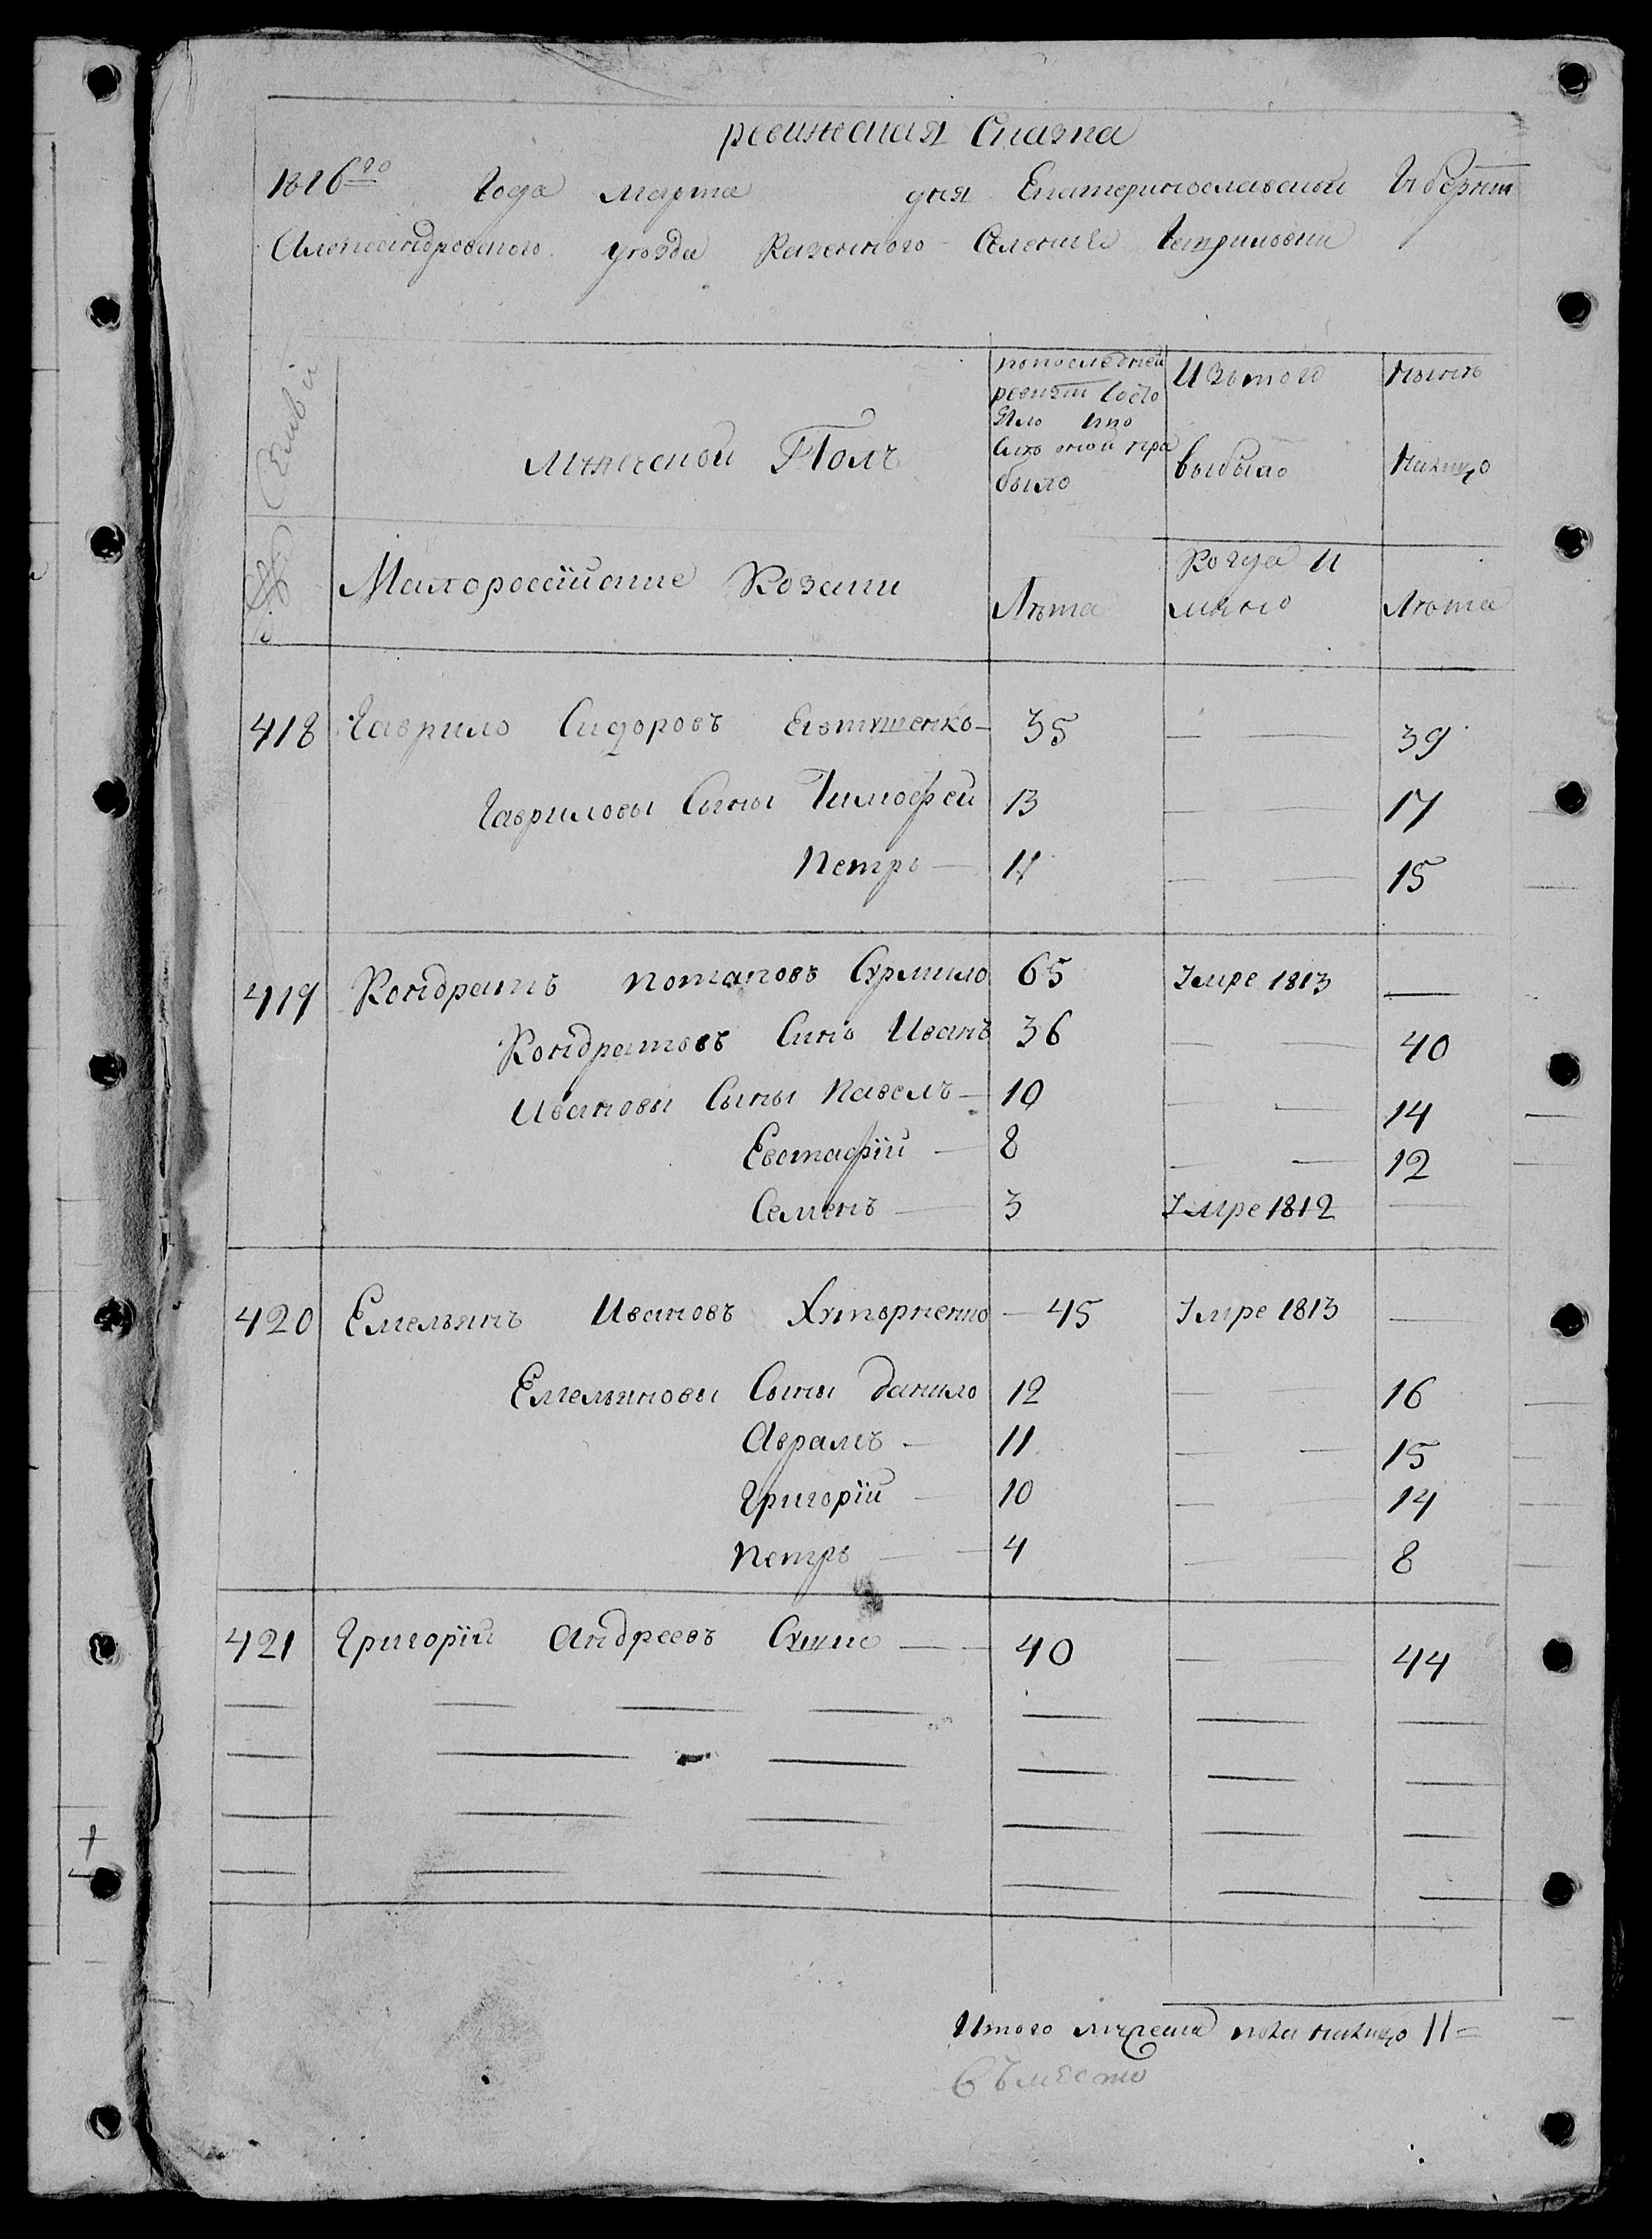 ревижская Сказка
1816го Года Марта дня Екатеринославской Губернии
Александровскаго уезда Казенного Селения
Семьи
мужеской Полъ
по последней
ревизии Состо
яло и по
было
Изътого
выбыло
Ныне
Налицо
№
Малороссийские Козаки
Лета
Когда И
имяно
Лета
418 Гаврило Сидоровъ Евтушенко 35 — — 39
Гавриловы Сыны Тимофей 13 — — 17
Петръ — 11 — — 15
419 Кондратъ Потаповъ Сурмило 65 Умре 1813 —
Кондратовъ Синъ Иванъ 36 — — 40
Иванови Сыны Павелъ — 10 — — 14
Евстафій — 8 — — 12
Семенъ — 3 Умре 1812 —
420 Емельянъ Ивановъ Хуторненко — 45 Умре 1813 —
Емельянови Сыны Данило 12 — 16
Аврамъ — 11 — — 15
Григорій — 10 — — 14
Петръ — — 4 — — 8
421 Григорій Андреевъ — — 40 — — 44
Итого мужеска пола налицо 11